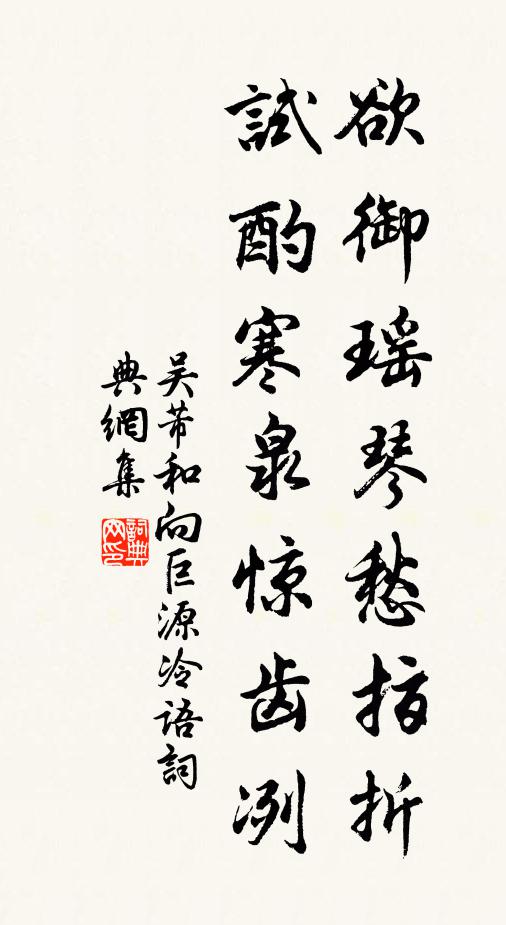 欲御瑶琴愁指折
試酌寒泉惊齿冽
吴芾和向巨源冷語詞
典網集
詞典网印